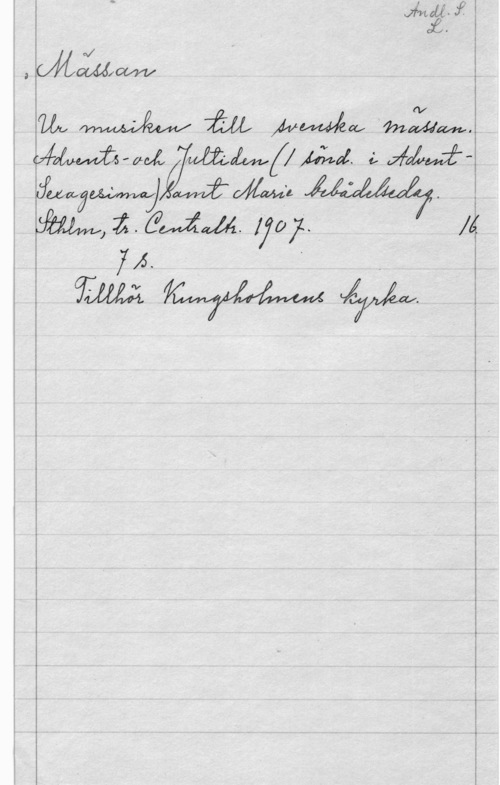 Andl. S.
L.
Mässan
Ur musiken till svenska mässan.
Advents- och Jultiden (1 sönd. i Advent -
Sexagesima) samt Marie bebådelsedag.
Sthlm, tr. Centraltr. 1907. 16
7 s.
Tillhör Kungsholmens kyrka.